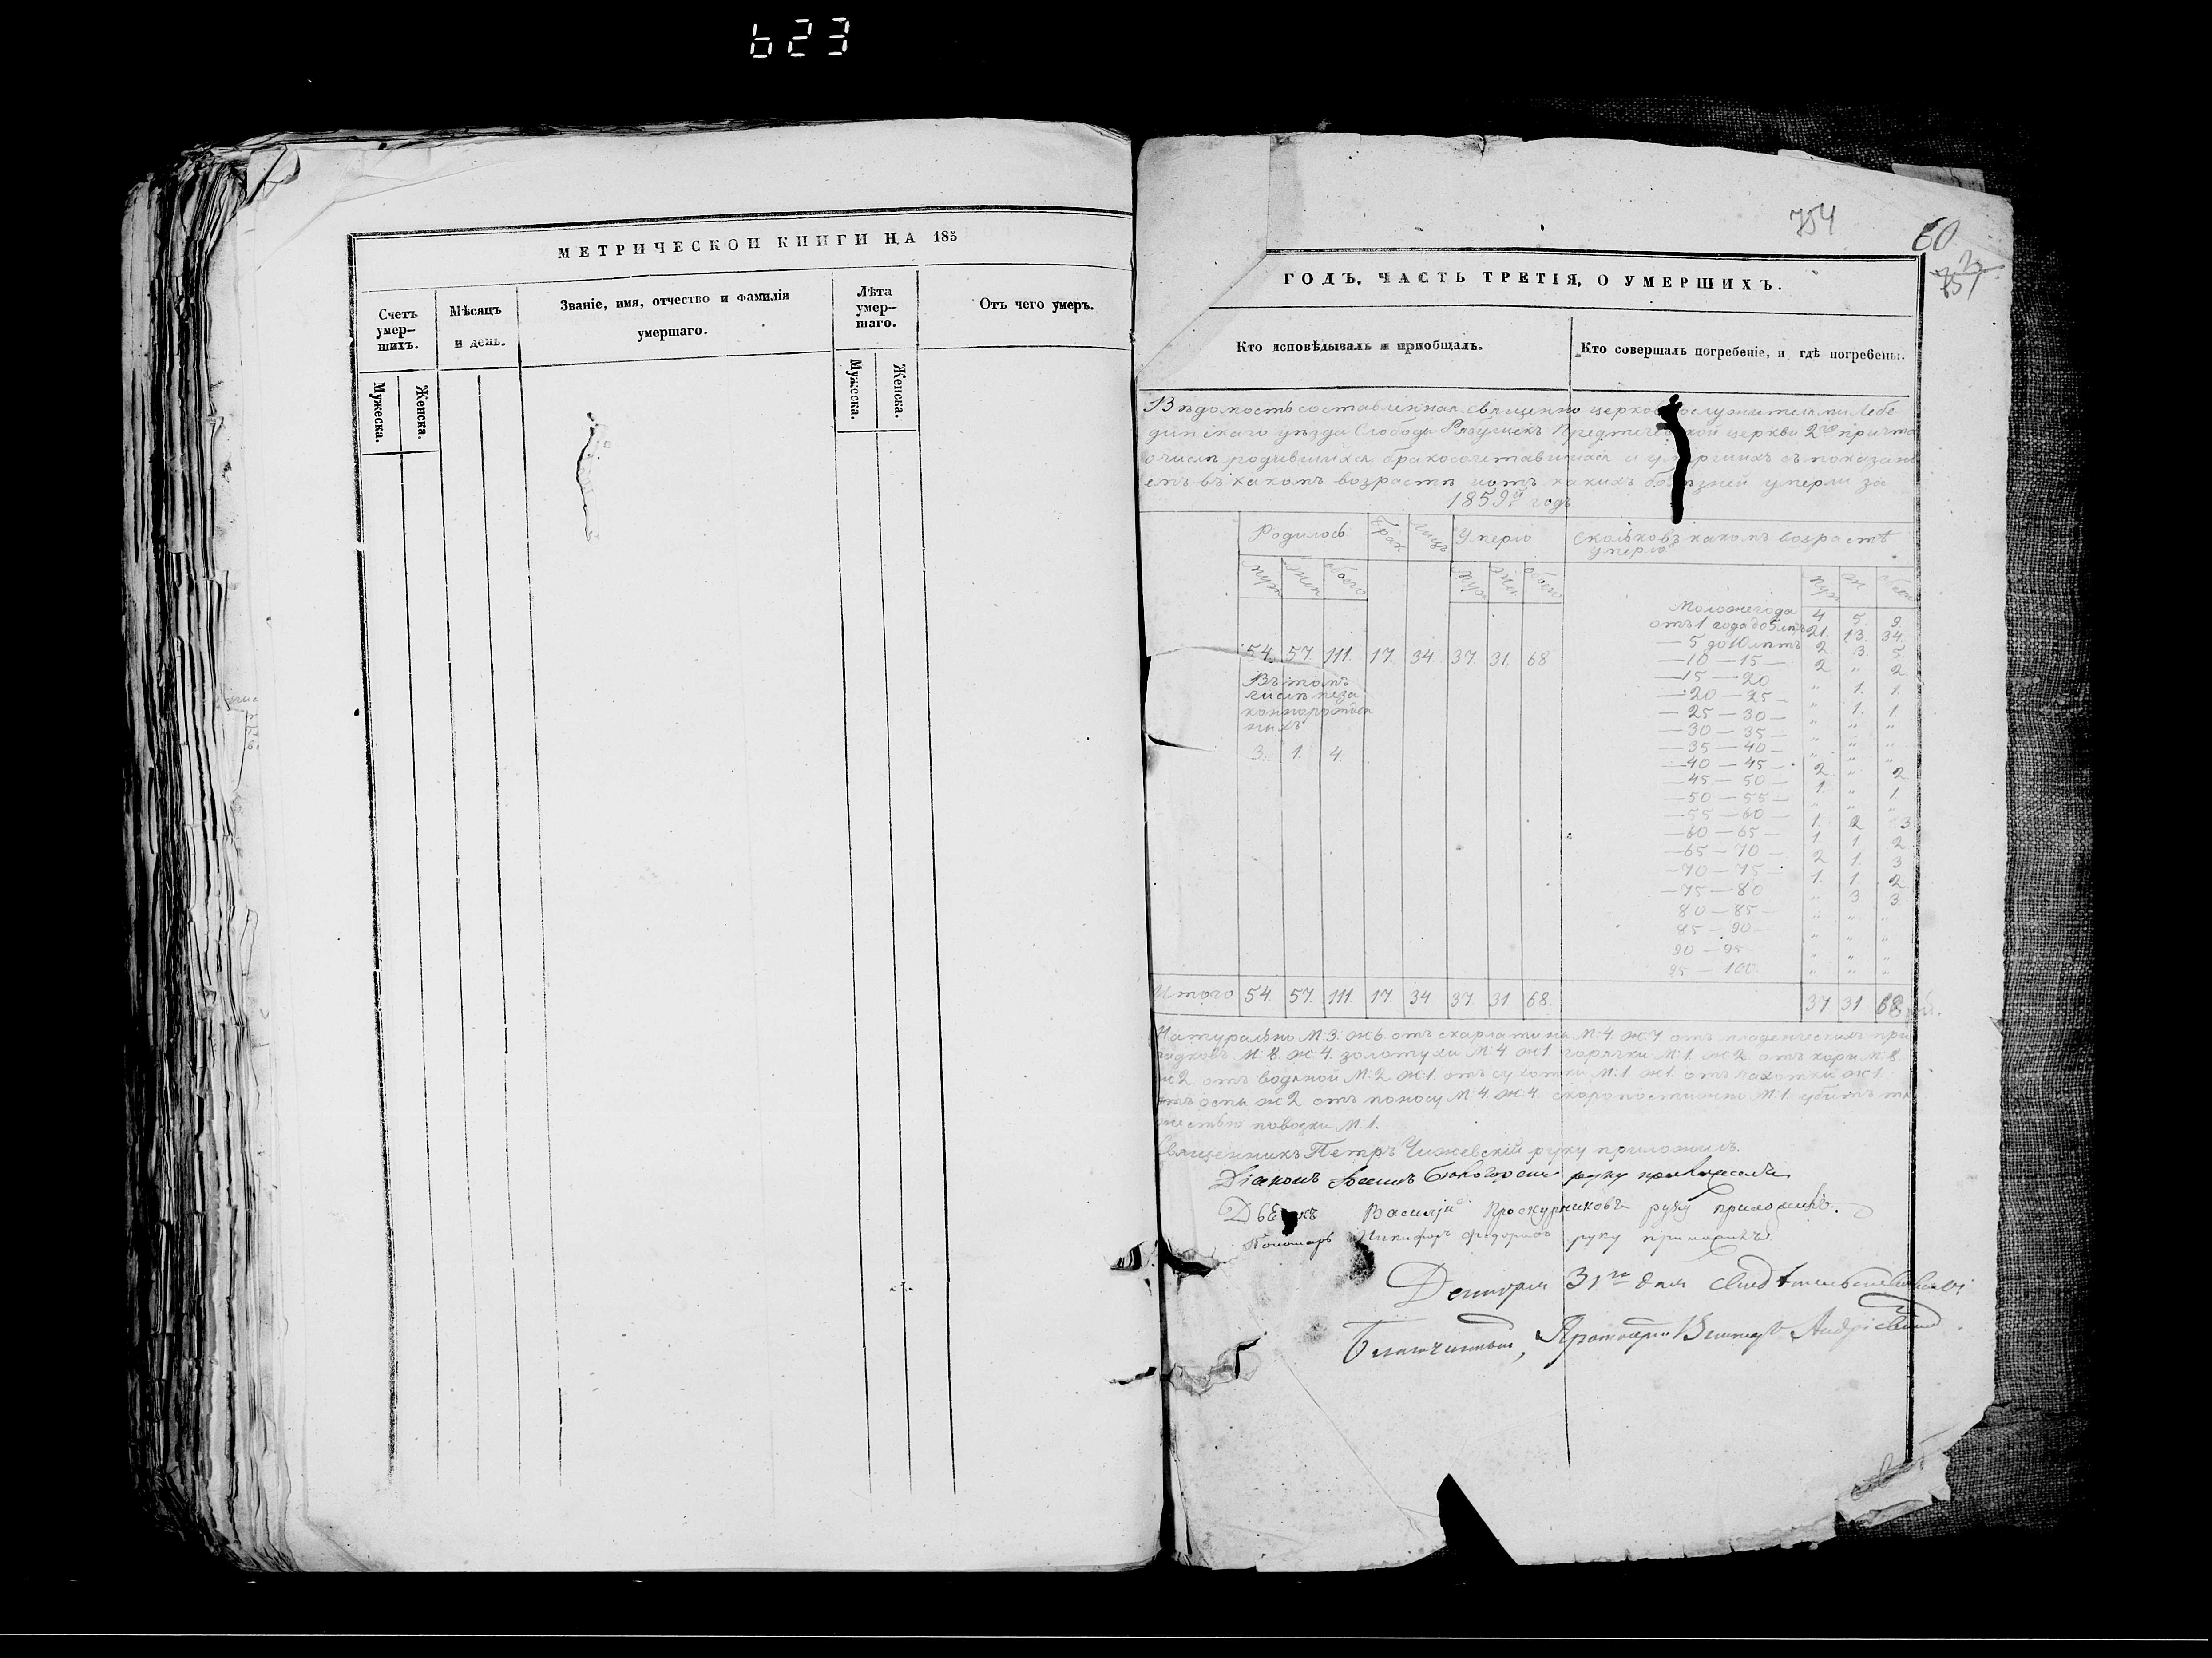 623
МЕТРИЧЕСКОЙ КНИГИ НА 185
Счетъ умер-
шихъ.
Мѣсяцъ
и день.
Званіе, имя, отчество и фамилія
умершаго.
Лѣта
умер-
шаго.
Отъ чего умеръ.
Мужеска.
Женска.
Мужеска.
Женска.
754
60
ГОДЪ, ЧАСТЬ ТРЕТІЯ, О УМЕРШИХЪ.
Кто исповѣдывалъ и пріобщалъ.
Кто совершалъ погребеніе, и гдѣ погребены.
Вѣдомость составленная священно церковнослужителями Лебе
динскаго уѣзда Слободы Рябушекъ Предтечевской церкви 2го причта
о числѣ родившихся бракосочетавшихся и умершихъ съ показані
емъ въ какомъ возрастѣ и отъ какихъ болѣзней умерли за
1859й годъ
Родилось Брак. Лицъ Умерло Сколько въ какомъ возрастѣ
умерло
муж жен обоего муж жен обоего муж жен обоего
Моложе года 4 5. 9.
отъ 1 года до 5 лѣтъ 21. 13. 34.
— 5 до 10 лѣтъ 2. 3. 5.
54. 57. 111. 17. 34. 37. 31. 68
— 10 — 15 — 2 „ 2.
Въ томъ
числѣ неза
коннорожден
ныхъ
3. 1. 4.
— 15 — 20 „ 1. 1.
— 20 — 25 — „ 1. 1.
— 25 — 30 — „ „ „
— 30 — 35 — „ „ „
— 35 — 40 — „ „ „
— 40 — 45 — 2 „ 2
— 45 — 50 — 1. „ 1.
— 50 — 55 — „ „ „
— 55 — 60 — 1. 2 3
— 60 — 65 — 1. 1. 2
— 65 — 70 — 2 1. 3
— 70 — 75 — 1. 1 2
— 75 — 80 „ 3 3.
80 — 85 — „ „ „
85 — 90 — „ „ „
90 — 95 „ „ „
95 — 100 „ „ „
Итого 54. 57. 111. 17. 34 37. 31. 68. 37 31 68
Натурально М: 3. Ж 6 отъ скарлатины М: 4. Ж: 7 отъ младенческихъ при
падковъ М: 8. Ж: 4. золотухи М: 4 Ж 1. горячки М: 1. Ж 2 отъ кори М: 8.
Ж 2. отъ водяной М: 2. Ж: 1. отъ сухотки М: 1. Ж 1. отъ чахотки Ж 1
отъ оспы Ж 2 отъ поносу М: 4. Ж: 4. скоропостижно М: 1. убитъ тя
жестью повозки М: 1.
Священникъ Петръ Чижевскій руку приложилъ.
Діаконъ руку приложилъ
Василій Проскурниковъ руку приложилъ.
Пономарь Никифоръ Федоровъ руку приложилъ
31го дня свидѣтельствовалъ
Благочинный, Протоіерей Андріевскій